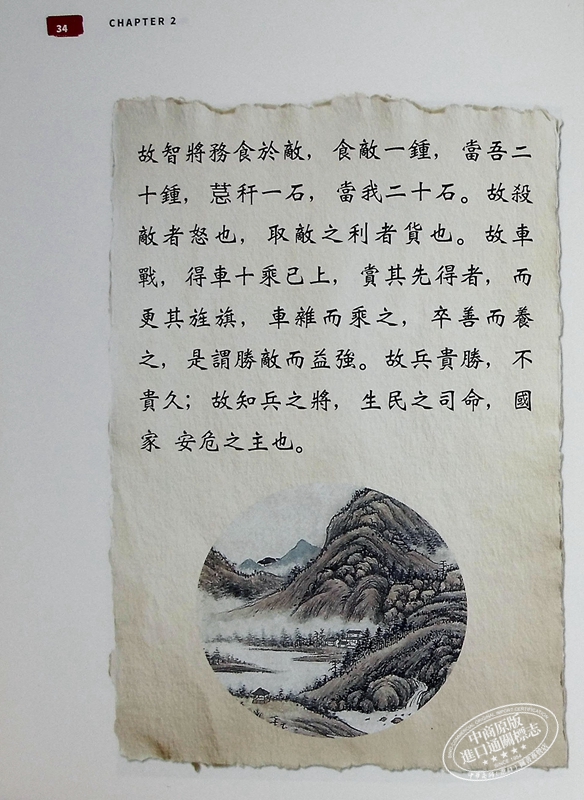 34
CHAPTER 2
故智將務食於敵，食敵一鍾，當吾二
十鍾，䓤秆一石，當我二十石。故殺
敵者怒也，取敵之利者貨也。故車
戰，得車十乘已上，賞其先得者，而
更其旌旗，車雜而乘之，卒善而養
之，是謂勝敵而益強。故兵貴勝，不
貴久；故知兵之將，生民之司命，國
家 安危之主也。
中商原版
進口通關標志
SINCE 1980